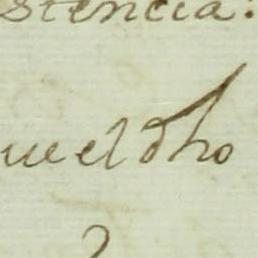 stencia:
que el dho